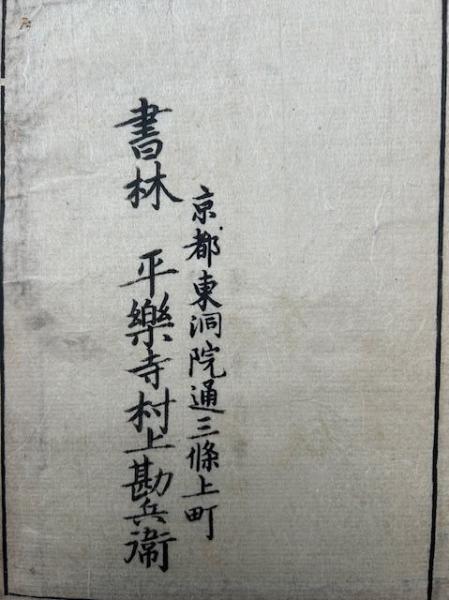 京都東洞院通三條上町
書林　平樂寺村上勘兵衞